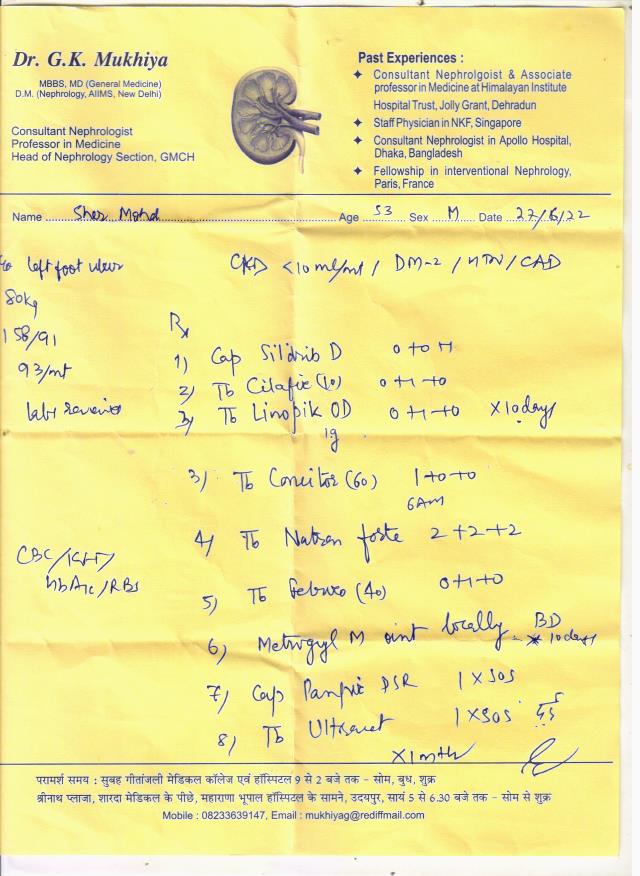 Dr. G.K. Mukhiya
MBBS, MD (General Medicine)
D.M. (Nephrology, AIIMS, New Delhi)
Consultant Nephrologist
Professor in Medicine
Head of Nephrology Section, GMCH
Past Experiences :
✦ Consultant Nephrolgoist & Associate
professor in Medicine at Himalayan Institute
Hospital Trust, Jolly Grant, Dehradun
✦ Staff Physician in NKF, Singapore
✦ Consultant Nephrologist in Apollo Hospital,
Dhaka, Bangladesh
✦ Fellowship in interventional Nephrology,
Paris, France
Name Sher Mohd Age 53 Sex M Date 27/6/22
left foot ulcer
CKD <10 ml/mt / DM-2 / HTN / CAD
80kg
158/91
93/mt
Rx
1) Cap Sildrib D 0+0+1
2) Tb (10) 0+1+0
3) Tb OD 0+1+0 x10days
1g
3) Tb (60) 1+0+0
6AM
4) Tb forte 2+2+2
CBC/KFT/
HbA1c/RBS
5) Tb (40) 0+1+0
6) Metrogyl M oint locally BD
x 10days
7) Cap DSR 1 x SOS
8) Tb Ultracet 1 x SOS
x1mth
परामर्श समय : सुबह गीतांजली मेडिकल कॉलेज एवं हॉस्पिटल 9 से 2 बजे तक - सोम, बुध, शुक्र
श्रीनाथ प्लाजा, शारदा मेडिकल के पीछे, महाराणा भूपाल हॉस्पिटल के सामने, उदयपुर, सायं 5 से 6.30 बजे तक - सोम से शुक्र
Mobile : 08233639147, Email : mukhiyag@rediffmail.com